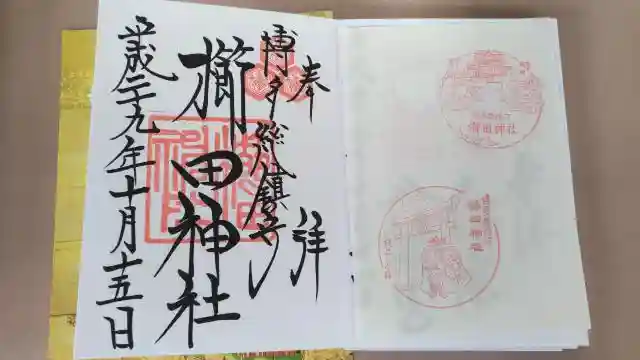 奉拝
博多総鎮守
櫛田神社
平成二十九年十月十五日
櫛田神社
櫛田神社